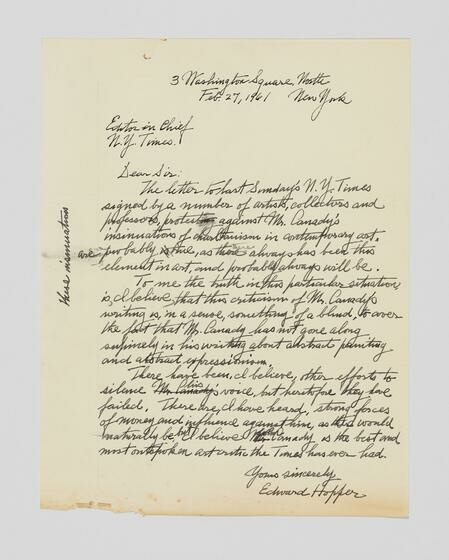 3 Washington Square, North
Feb. 27, 1961 New York
Editor in Chief
N.Y. Times.
Dear Sir:
The letter to last Sunday's N.Y. Times
signed by a number of artists, collectors and
professors, protesting against Mr. Canady's
insinuations of charlatanism in contemporary art.
these insinuations
are probably true, as there always has been this
element in art, and probably always will be.
To me the truth in this particular situation
is, I believe, that this criticism of Mr. Canady's
writing is, in a sense, something of a blind, to cover
the fact that Mr. Canady has not gone along
supinely in his writing about abstract painting
and abstract expressionism.
There have been, I believe, other efforts to
silence his voice, but heretofore they have
failed. There are, I have heard, strong forces
of money and influence against him, as there would
naturally be, but I believe Canady is the best and
most outspoken art critic the Times has ever had.
Yours sincerely
Edward Hopper